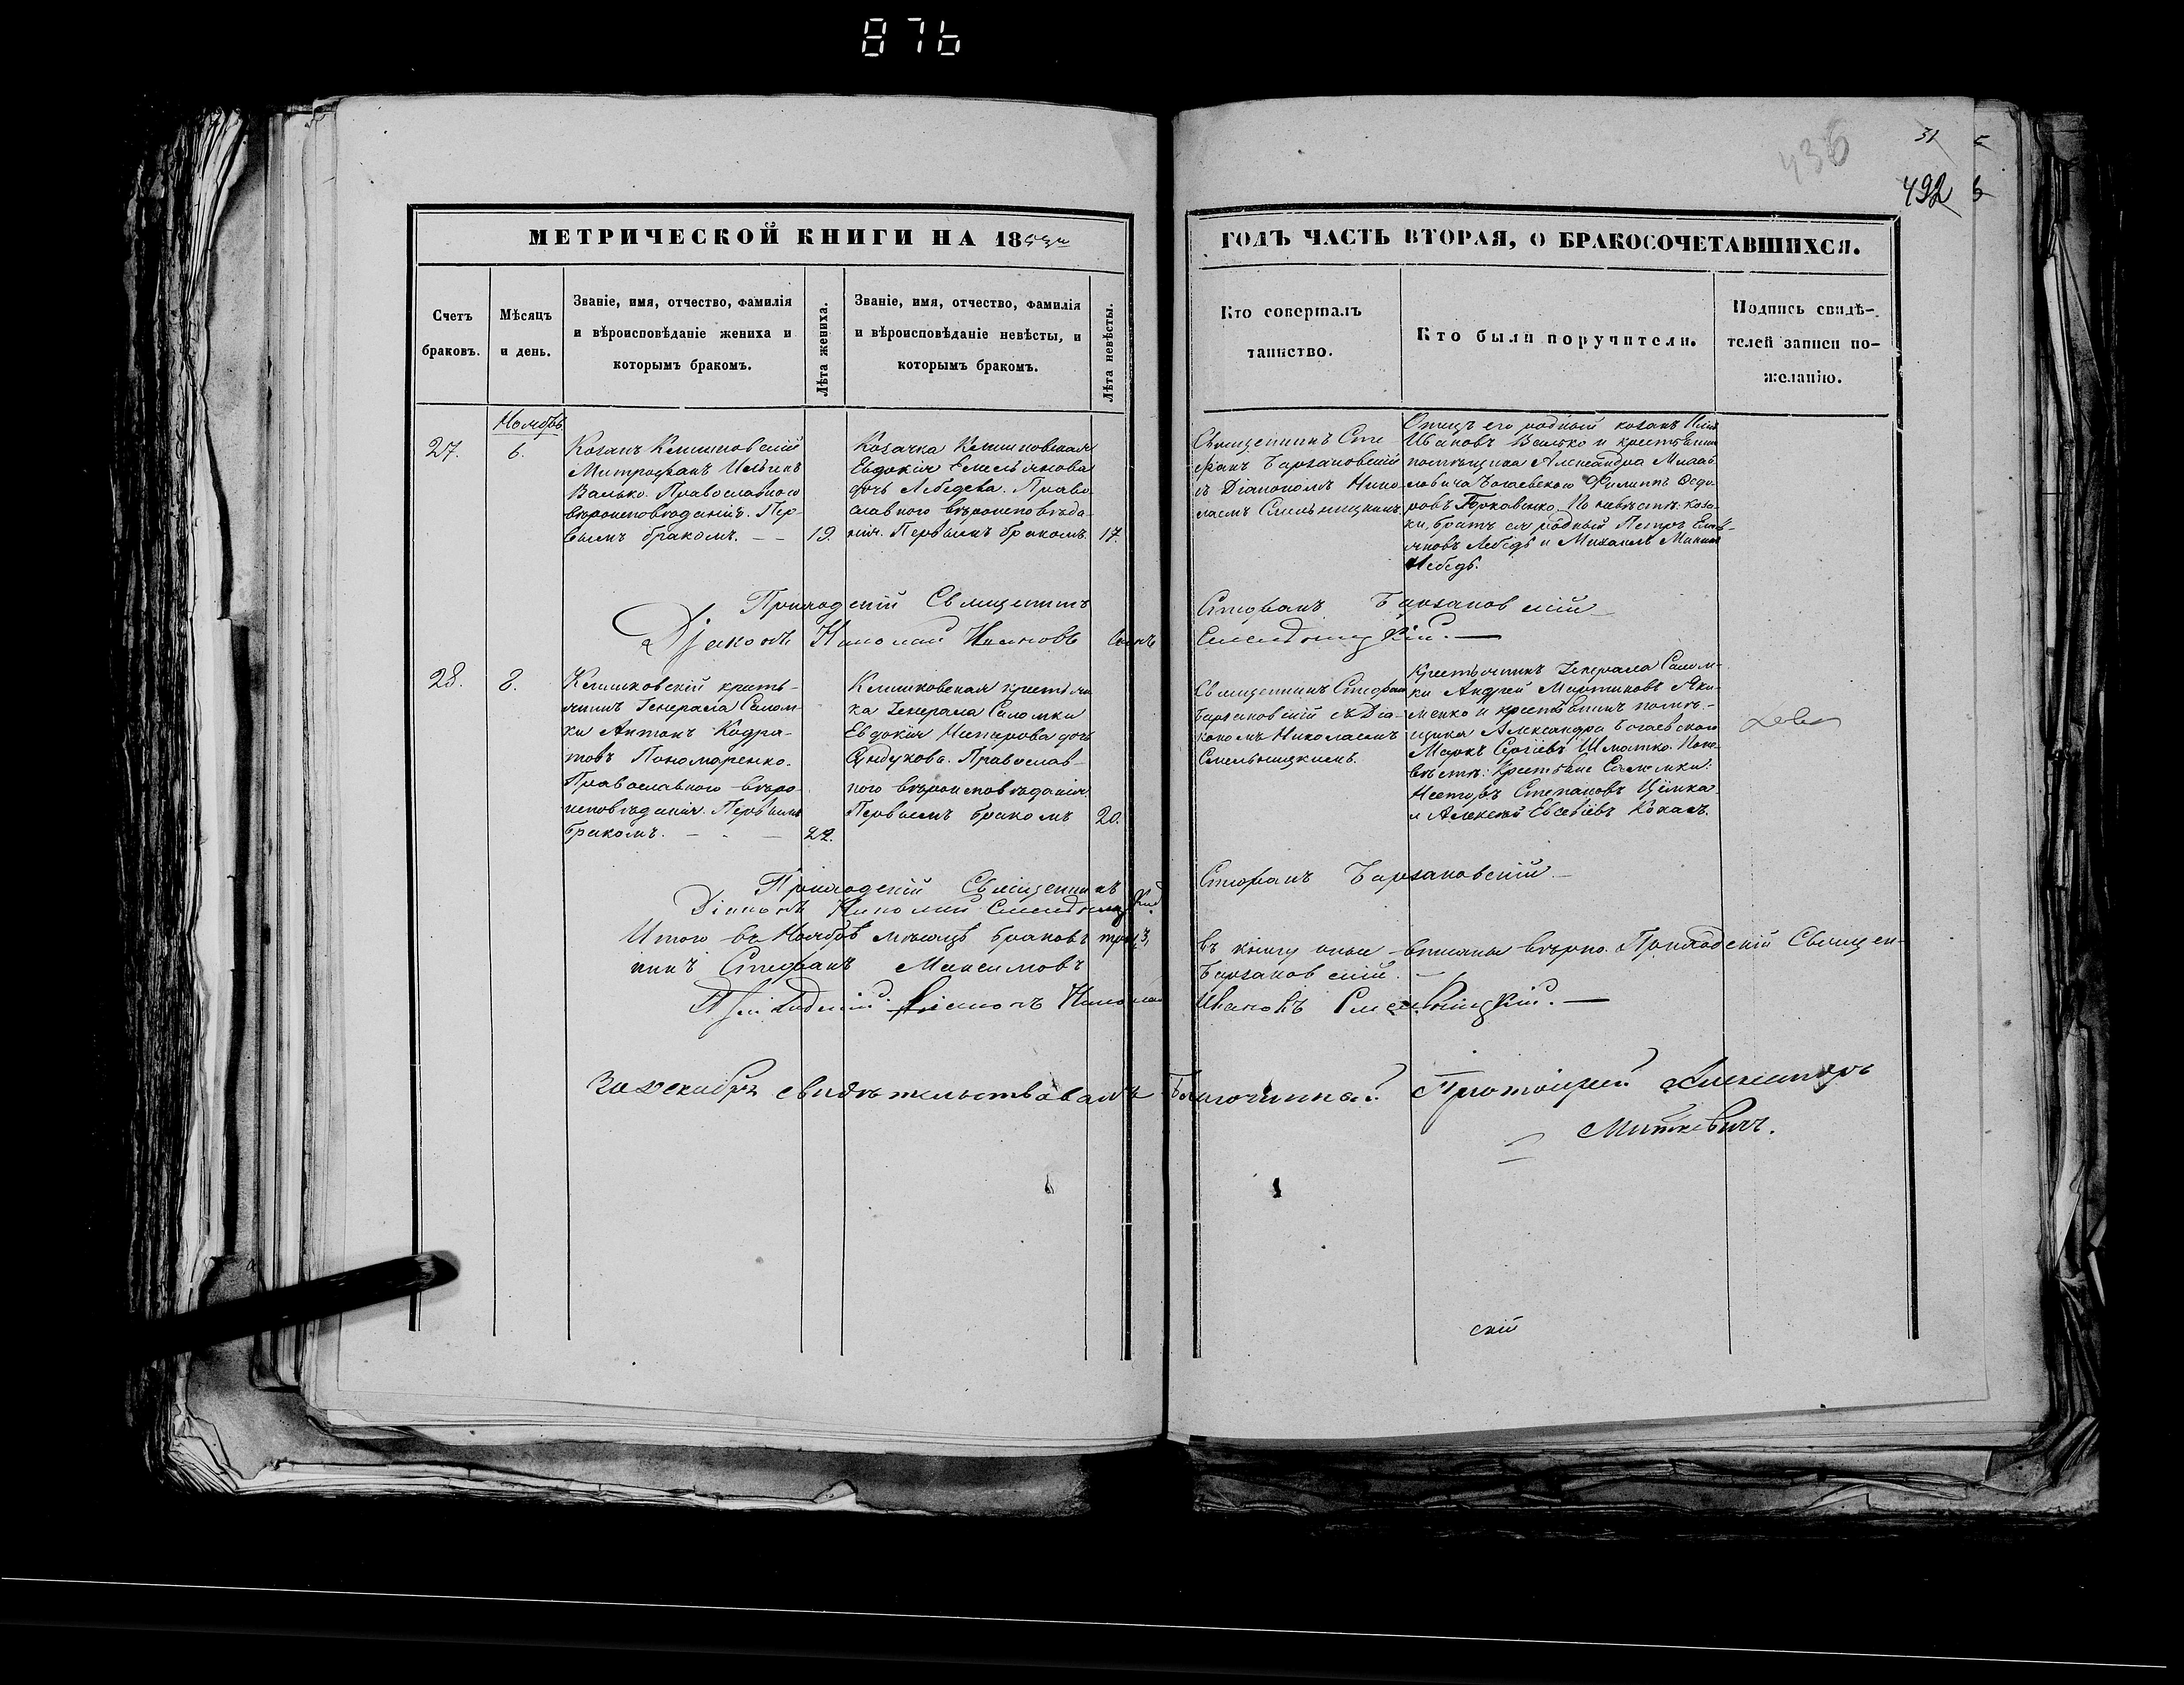 876
436
31
492
МЕТРИЧЕСКОЙ КНИГИ НА 1853й
ГОДЪ ЧАСТЬ ВТОРАЯ, О БРАКОСОЧЕТАВШИХСЯ.
Счетъ
браковъ.
Мѣсяцъ
и день.
Званіе, имя, отчество, фамилія
и вѣроисповѣданіе жениха и
которымъ бракомъ.
Лѣта жениха.
Званіе, имя, отчество, фамилія
и вѣроисповѣданіе невѣсты, и
которымъ бракомъ.
Лѣта невѣсты.
Кто совершалъ
таинство.
Кто были поручители.
Подпись свидѣ-
телей записи по-
желанію.
Ноябрь
27.
6.
Козакъ Клишковскій
Митрофанъ Ильинъ
Валько. Православнаго
вѣроисповѣданія. Пер-
вымъ бракомъ.
19.
Козачка Клишковская
Евдокія Емельянова
дочь Лебедева. Право-
славного вѣроисповѣда-
нія. Первымъ бракомъ.
17.
Священникъ Сте
фанъ Барзаковскій
съ Діакономъ Нико
лаемъ Смельницкимъ.
Отецъ его родный козакъ Илья
Ивановъ Валько и крестьянинъ
помѣщика Александра Михай
ловича Богаевского Филиппъ Федо-
ровъ Борковенко. По невѣстѣ: коза-
ки, братъ ея родный Петръ Емель-
яновъ Лебедь и Михаилъ
Лебедь.
Приходскій Священникъ
Стефанъ Барзаковскій
Діаконъ Николай Ивановъ сынъ
Смельницкій.
28.
8.
Клишковскій кресть-
янинъ Генерала Салом-
ки Антонъ Кодра-
товъ Пономаренко.
Православного вѣро-
исповѣданія. Первымъ
бракомъ.
22.
Клишковская крестьян
ка Генерала Саломки
Евдокія дочь
Сундукова. Православ-
ного вѣроисповѣданія.
Первымъ бракомъ
20.
Священникъ Стефанъ
Барзаковскій съ Діа-
кономъ Николаемъ
Смельницкимъ.
Крестьянинъ Генерала Салом-
ки Андрей Мартиновъ Яки-
менко и крестьянинъ помѣ-
щика Александра Богаевского
Маркъ Сергіевъ Шматко. По не-
вѣстѣ: Крестьяне Саломки:
Несторъ Степановъ Цилка
и Алексей Евсевіевъ
Приходскій Священникъ
Стефанъ Барзаковскій
Діаконъ Николай Смельницкій
Итого въ Ноябрѣ мѣсяцѣ браковъ три 3,
въ книгу сію вписаны вѣрно. Приходскій Священ-
никъ Стефанъ Максимовъ
Барзаковскій.
Приходскій Діаконъ Николай
Ивановъ Смельницкій.
За декабрь свидѣтельствовалъ Благочинный Протоіерей Александръ
Миткевичъ.
скій